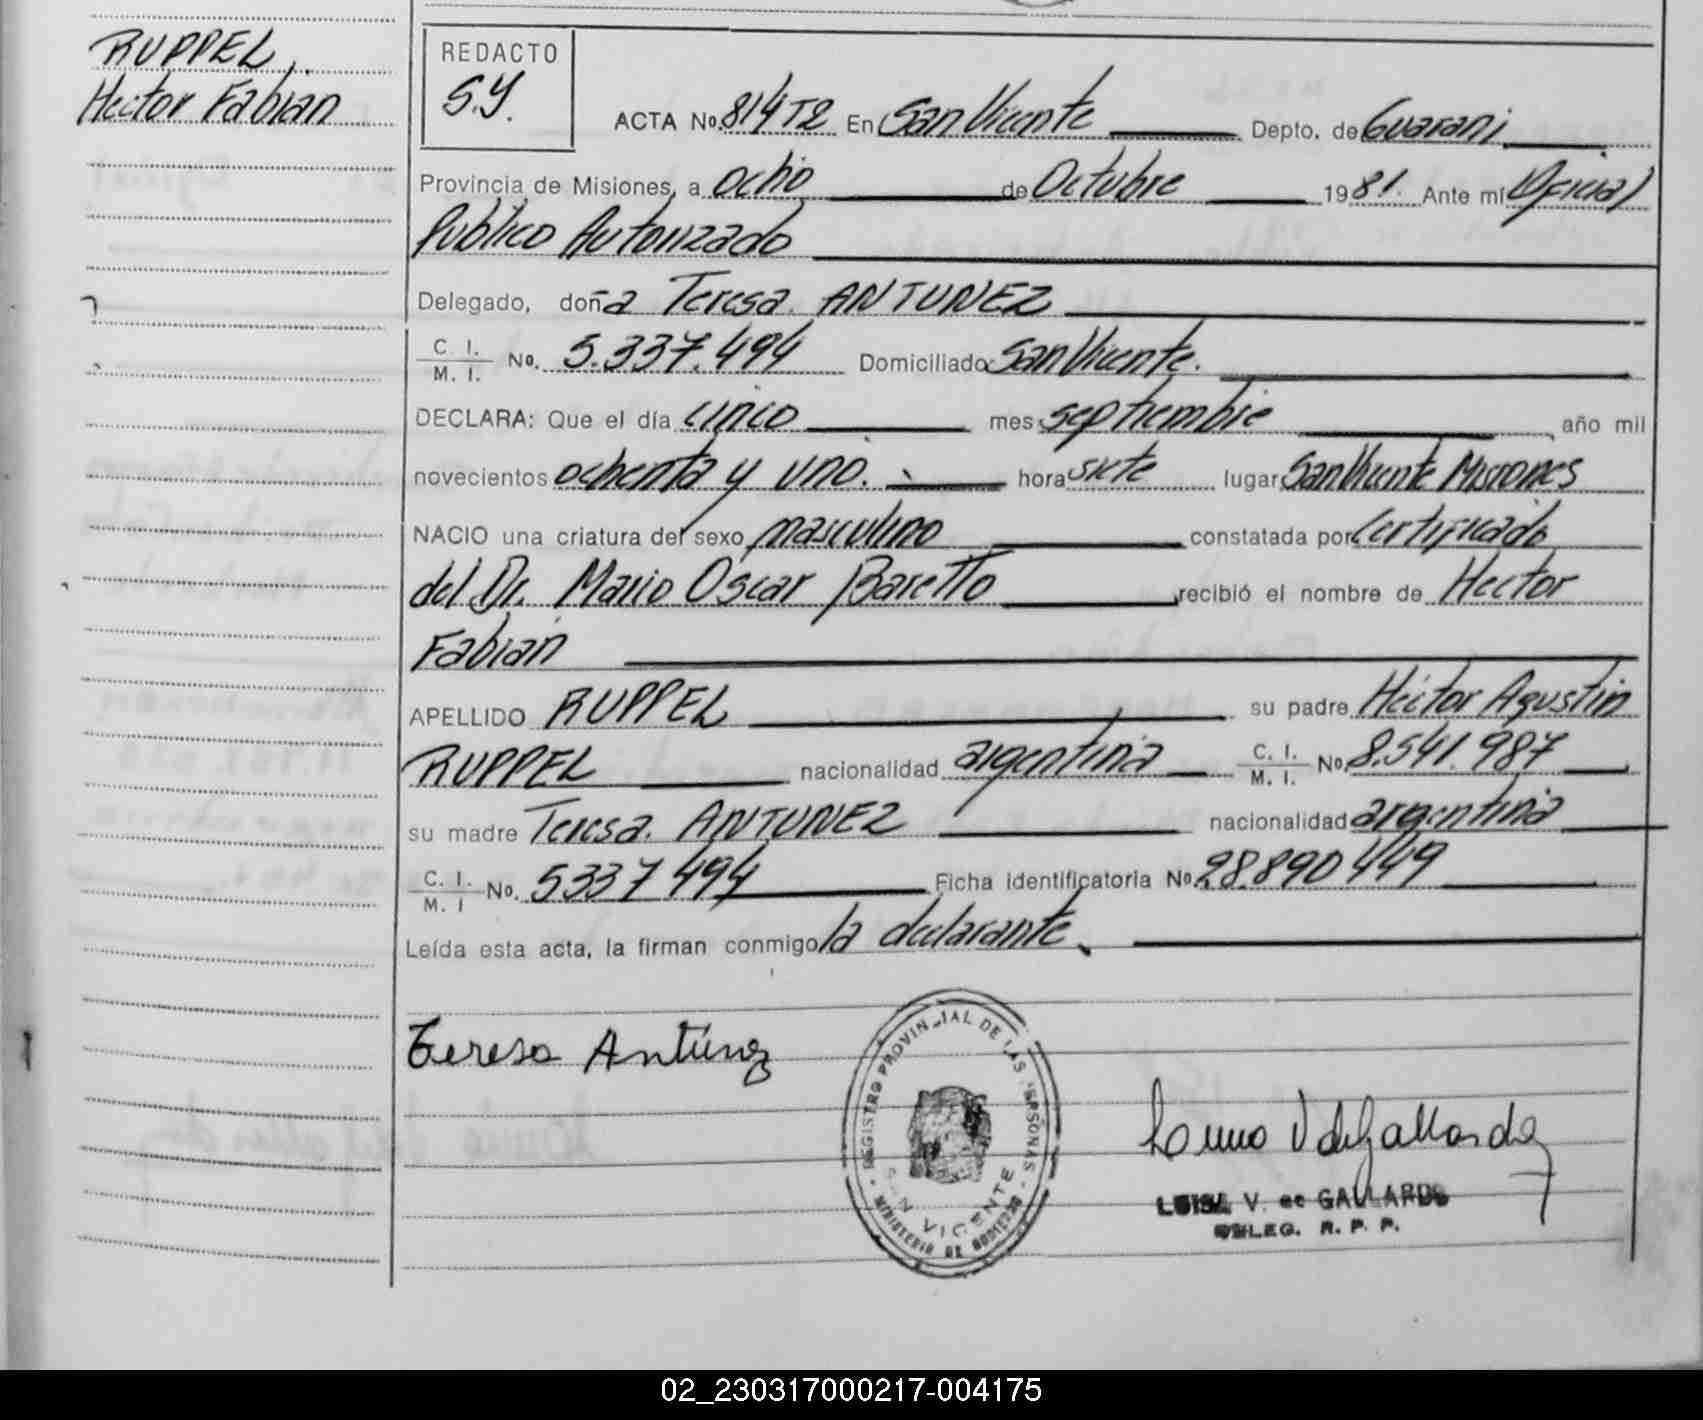 RUPPEL,
Hector Fabian
REDACTO
S.Y.
ACTA No. 814 T2 En San Vicente Depto. de Guarani
Provincia de Misiones, a ocho de Octubre 1981. Ante mi Oficial
Publico Autorizado
Delegado, doña Teresa ANTUNEZ
C. I.
M. I. No. 5.337.494 Domiciliado: San Vicente.
DECLARA: Que el día cinco mes septiembre año mil
novecientos ochenta y uno. hora siete lugar San Vicente Misiones
NACIO una criatura del sexo masculino constatada por Certificado
del Dr. Mario Oscar Baretto recibió el nombre de Hector
Fabian
APELLIDO RUPPEL su padre Hector Agustin
RUPPEL nacionalidad argentina C. I.
M. I. No. 8.541.987
su madre Teresa. ANTUNEZ nacionalidad argentina
C. I.
M. I No. 5337494 Ficha identificatoria No. 28.890449
Leída esta acta, la firman conmigo la declarante.
Teresa Antunez
REGISTRO PROVINCIAL DE LAS PERSONAS
SAN VICENTE
MINISTERIO DE GOBIERNO
V de Gallardo
LUISA V. de GALLARDO
DELEG. R. P. P.
02_230317000217-004175